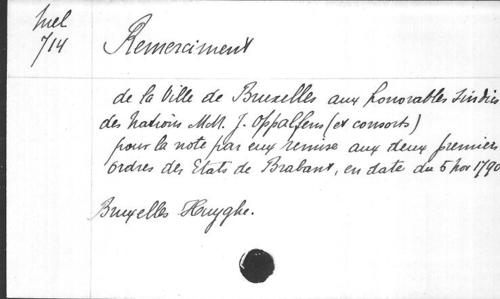 Mel
714
Remerciment
de la Ville de Bruxelles aux honorables Sindics
des Nations MM. J. Oppalfens (et consorts)
pour la note par eux remise aux deux premiers
Ordres des Etats de Brabant, en date du 5 nov 1790
Bruxelles Huyghe.